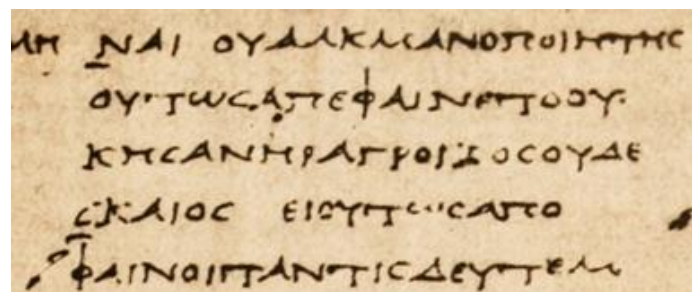 ΜΗ ΝΑΙ ΟΥΑΛΚΜΑΝΟΠΟΙΗΤΗϹ
ΟΥΤΩϹΑΠΕΦΑΙΝΕΤΟΟΥ
ΚΗϹΑΝΗΡΑΓΡΟΙΚΟϹΟΥΔΕ
ϹΚΑΙΟϹ ΕΙΟΥΤΩϹΑΠΟ
ΦΑΙΝΟΙΤΑΝΤΙϹ